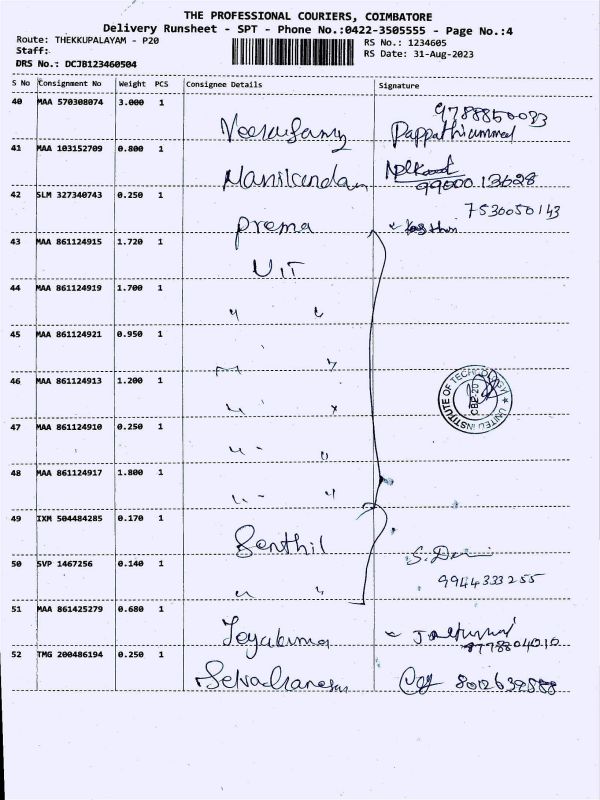 THE PROFESSIONAL COURIERS, COIMBATORE
Delivery Runsheet - SPT - Phone No.:0422-3505555 - Page No.:4
Route: THEKKUPALAYAM - P20
RS No.: 1234605
Staff:
RS Date: 31-Aug-2023
DRS No.: DCJB123460504
S No Consignment No Weight PCS Consignee Details Signature
40 MAA 570308074 3.000 1
9788850033
Pappathiammal
41 MAA 103152709 0.800 1
Manikandan
99000 13628
42 SLM 327340743 0.250 1
7530050143
prema
43 MAA 861124915 1.720 1
UIT
44 MAA 861124919 1.700 1
" "
45 MAA 861124921 0.950 1
46 MAA 861124913 1.200 1
UNITED INSTITUTE OF TECHNOLOGY
47 MAA 861124910 0.250 1
48 MAA 861124917 1.800 1
49 IXM 504484285 0.170 1
Senthil
50 SVP 1467256 0.140 1
9944333255
" "
51 MAA 861425279 0.680 1
Jeyakumar
8778804010
52 TMG 200486194 0.250 1